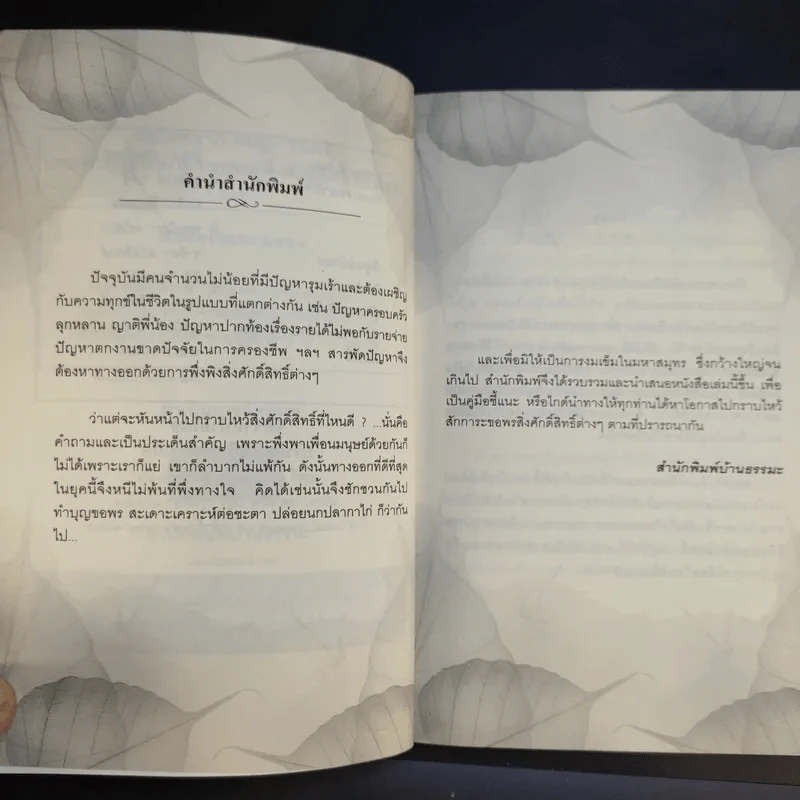 คำนำสำนักพิมพ์
ปัจจุบันมีคนจำนวนไม่น้อยที่มีปัญหารุมเร้าและต้องเผชิญ
กับความทุกข์ในชีวิตในรูปแบบที่แตกต่างกัน เช่น ปัญหาครอบครัว
ลูกหลาน ญาติพี่น้อง ปัญหาปากท้องเรื่องรายได้ไม่พอกับรายจ่าย
ปัญหาตกงานขาดปัจจัยในการครองชีพ ฯลฯ สารพัดปัญหาจึง
ต้องหาทางออกด้วยการพึ่งพิงสิ่งศักดิ์สิทธิ์ต่างๆ
ว่าแต่จะหันหน้าไปกราบไหว้สิ่งศักดิ์สิทธิ์ที่ไหนดี ? ...นั่นคือ
คำถามและเป็นประเด็นสำคัญ เพราะพึ่งพาเพื่อนมนุษย์ด้วยกันก็
ไม่ได้เพราะเราก็แย่ เขาก็ลำบากไม่แพ้กัน ดังนั้นทางออกที่ดีที่สุด
ในยุคนี้จึงหนีไม่พ้นที่พึ่งทางใจ คิดได้เช่นนั้นจึงชักชวนกันไป
ทำบุญขอพร สะเดาะเคราะห์ต่อชะตา ปล่อยนกปลากาไก่ ก็ว่ากัน
ไป...
และเพื่อมิให้เป็นการงมเข็มในมหาสมุทร ซึ่งกว้างใหญ่จน
เกินไป สำนักพิมพ์จึงได้รวบรวมและนำเสนอหนังสือเล่มนี้ขึ้น เพื่อ
เป็นคู่มือชี้แนะ หรือไกด์นำทางให้ทุกท่านได้หาโอกาสไปกราบไหว้
สักการะขอพรสิ่งศักดิ์สิทธิ์ต่างๆ ตามที่ปรารถนากัน
สำนักพิมพ์บ้านธรรมะ